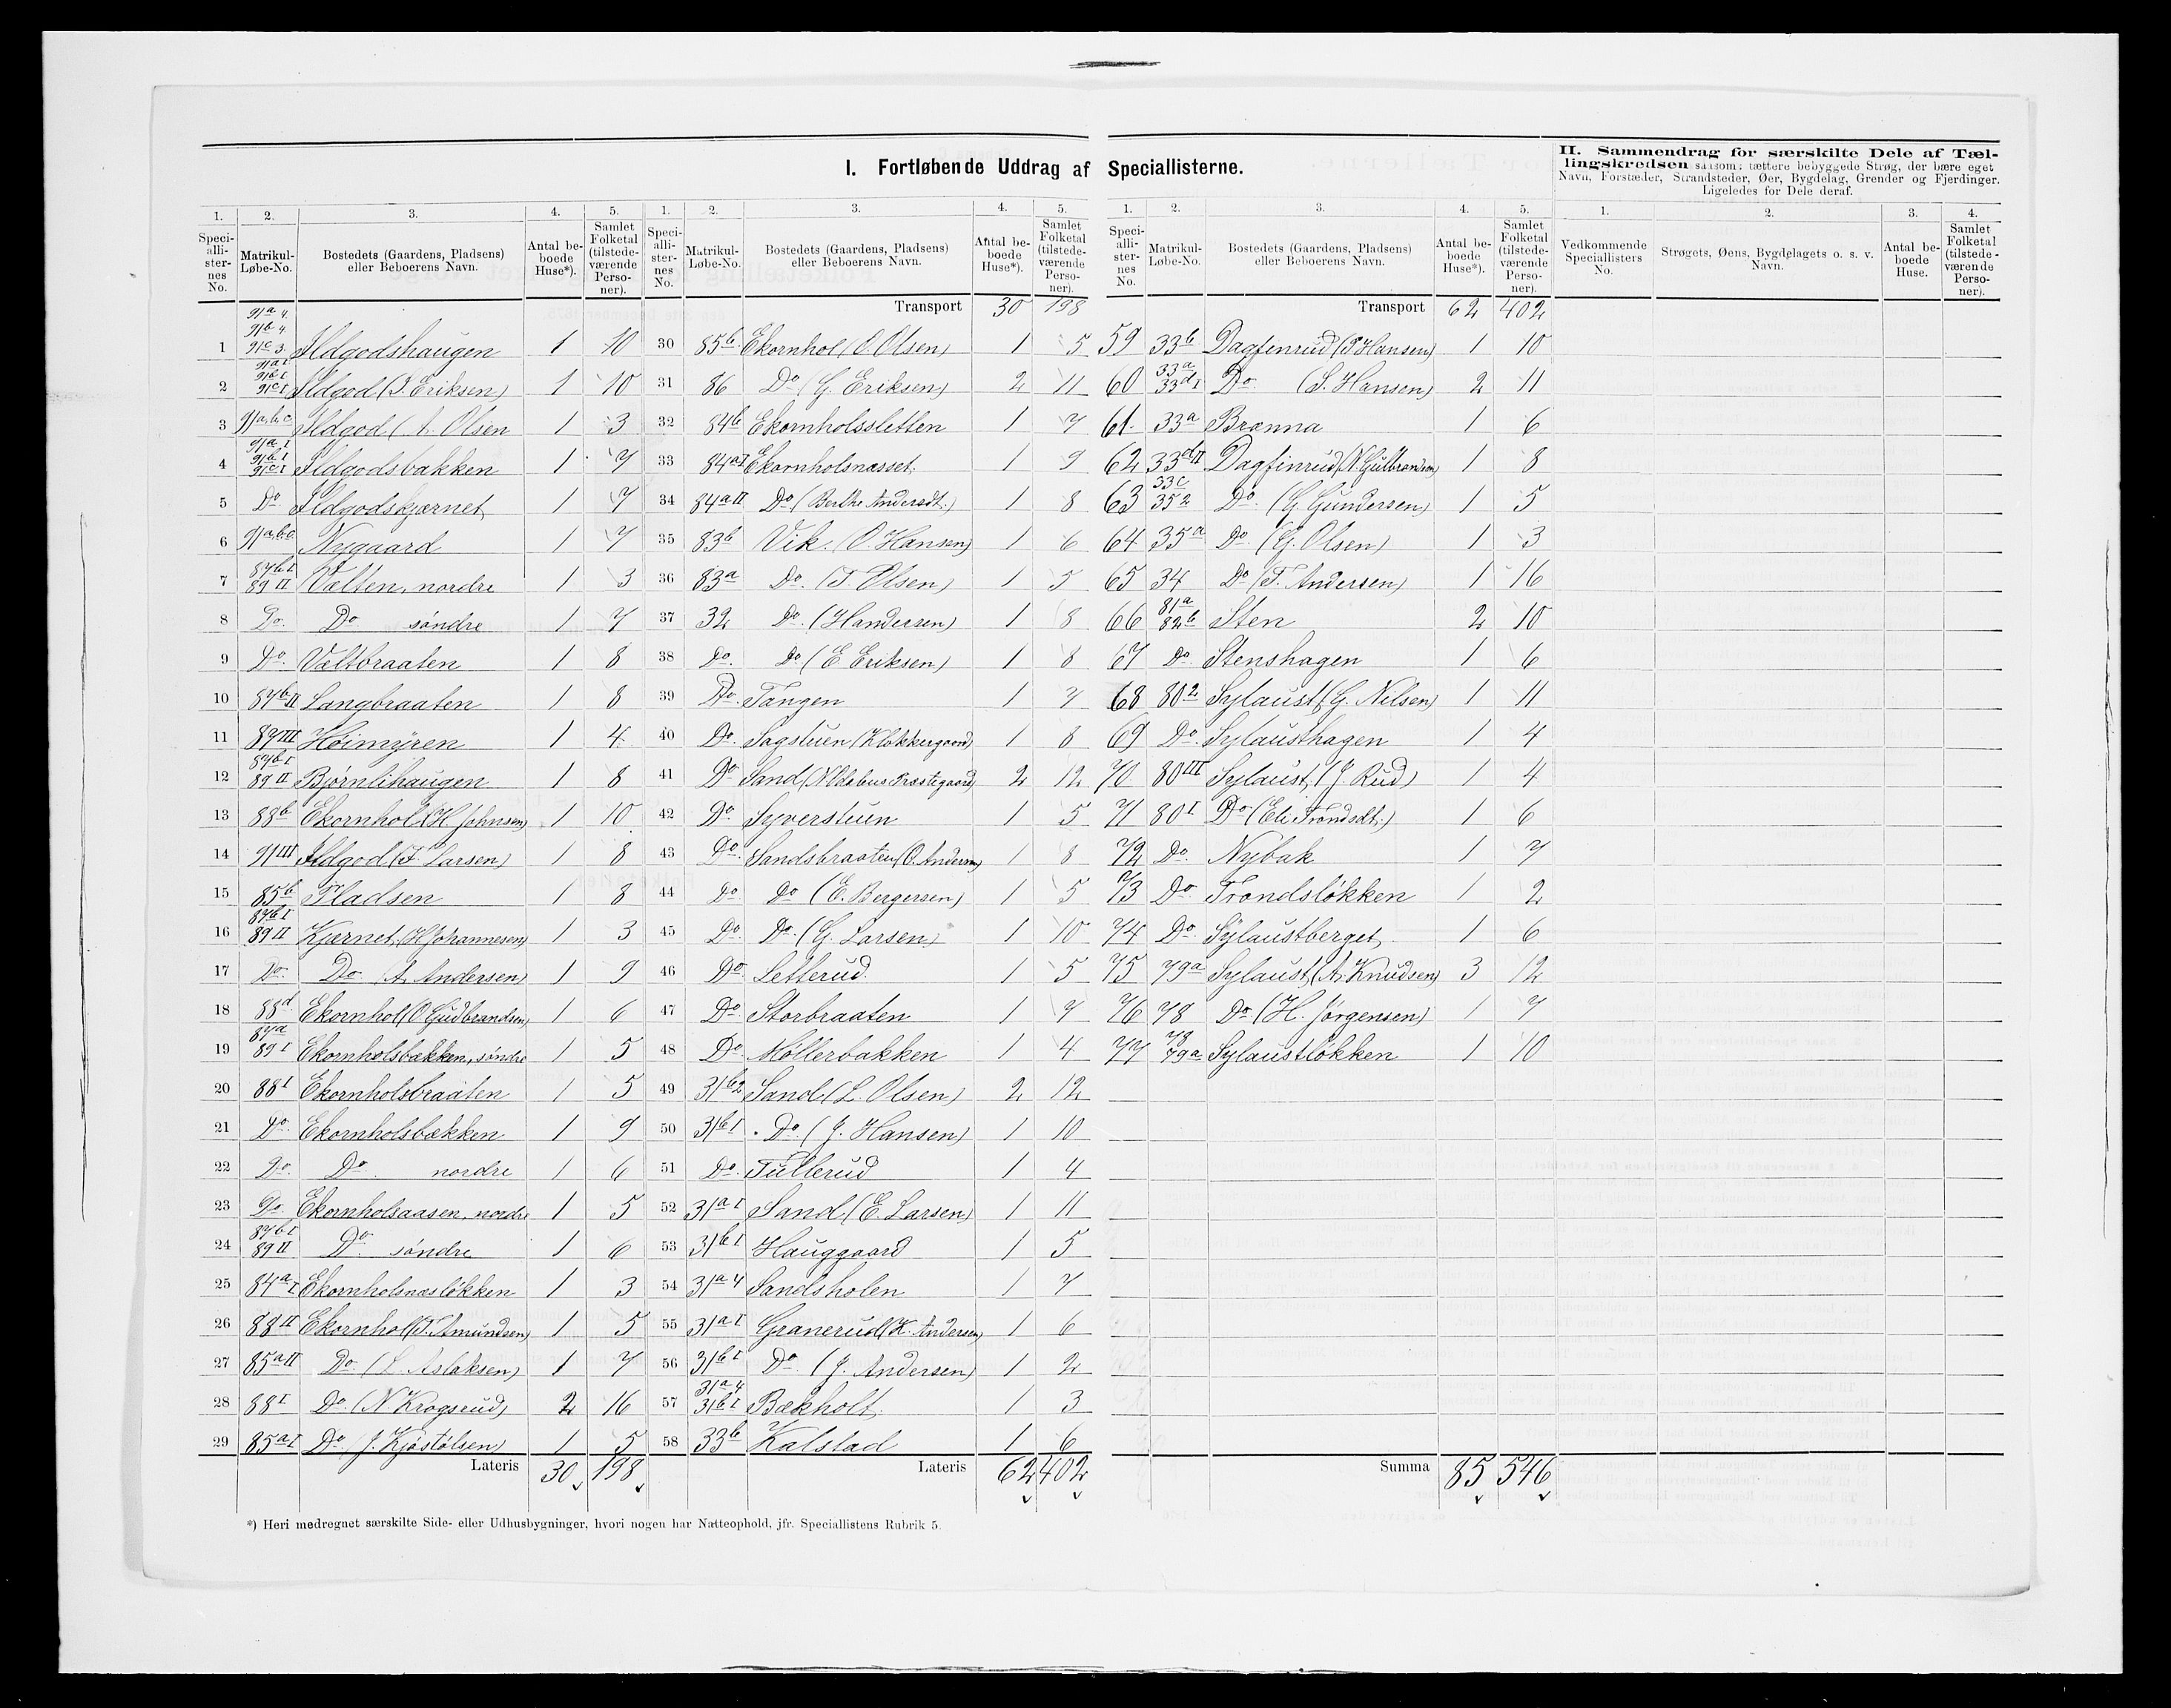 I. Fortløbende Uddrag af Speciallisterne.
II. Sammendrag for særskilte Dele af Tællingskredsen saasom: tættere bebyggede Strøg, der bære eget
Navn, Forstæder, Strandsteder, Øer, Bygdelag, Grender og Fjerdinger.
Ligeledes for Dele deraf.
1. 2. 3. 4. 5.
Speciallisternes No. Matrikul-Løbe-No. Bostedets (Gaardens, Pladsens) eller Beboerens Navn. Antal beboede Huse*). Samlet Folketal (tilstedeværende Personer).
1 91a4. 91b4 91c3. Ildgodshaugen 1 10
2 91aI 91bI 91cI Ildgod (J. Eriksen) 1 10
3 91a,b,c Ildgod ( Olsen 1 3
4 91aI 91bI 91cI Ildgodsbakken 1 7
5 Do Ildgodskjærnet 1 7
6 91a,b,c Nygaard 1 7
7 87bI 89II Vælten, nordre 1 3
8 Do. Do søndre 1 7
9 Do. Væltbraaten 1 8
10 87bII Langbraaten 1 8
11 89III Høimyren 1 4
12 87bI 89II Bjørnlihaugen 1 8
13 88b Ekornhol (H. Johnsen) 1 10
14 91III Ildgod (F. Larsen) 1 8
15 85b Pladsen 1 8
16 87bI 89II Kjærnet, (H. Johannesen) 1 3
17 Do. Do (A. Andersen) 1 9
18 88d Ekornhol (O. Gudbrandsen) 1 6
19 87a 89I Ekornholsbakken, søndre 1 5
20 88I Ekornholsbraaten 1 5
21 Do. Ekornholsbækken 1 9
22 Do. Do nordre 1 6
23 Do. Ekornholsaasen, nordre 1 5
24 87bI 89II Do. søndre 1 6
25 84aI Ekornholsnæsløkken 1 3
26 88II Ekornhol (T. Amundsen) 1 5
27 85aII Do. (L. Aslaksen) 1 7
28 88I Do. (N. Krogsrud) 2 16
29 85aI Do (J. Kjøstølsen) 1 5
Lateris 30 198
1. 2. 3. 4. 5.
Speciallisternes No. Matrikul-Løbe-No. Bostedets (Gaardens, Pladsens) eller Beboerens Navn. Antal beboede Huse*). Samlet Folketal (tilstedeværende Personer).
Transport 30 198
30 85b Ekornhol (O. Olsen) 1 5
31 86 Do (G. Eriksen) 2 11
32 84b Ekornholssletten 1 7
33 84aI Ekornholsnæsset. 1 9
34 84aII Do (Berthe Andersdt.) 1 8
35 83b Vik. (O. Hansen) 1 6
36 83a Do. (T. Olsen) 1 5
37 32 Do. (H andersen) 1 8
38 Do. Do (E. Eriksen) 1 8
39 Do. Tangen 1 7
40 Do. Sagstuen (Klokkergaard) 1 8
41 Do Sand ( Præstegaard) 2 12
42 Do. Syverstuen 1 5
43 Do. Sandsbraaten (O. Andersen) 1 8
44 Do Do (E. Bergersen) 1 5
45 Do. Do. (G. Larsen) 1 10
46 Do. Letterud 1 5
47 Do. Storbraaten 1 7
48 Do. Møllerbakken 1 4
49 31b2 Sand (L. Olsen) 2 12
50 31bI Do. (J. Hansen) 1 10
51 Do. Tullerud 1 4
52 31aI Sand (E. Larsen) 1 11
53 31bI Hauggaard 1 5
54 31a4 Sandsholen 1 7
55 31aI Granerud (K. Andersen) 1 6
56 31bI Do. (J. Andersen) 1 2
57 31a4 31bI Bækholt 1 3
58 33b Kalstad 1 6
Lateris 62 402
1. 2. 3. 4. 5.
Speciallisternes No. Matrikul-Løbe-No. Bostedets (Gaardens, Pladsens) eller Beboerens Navn. Antal beboede Huse*). Samlet Folketal (tilstedeværende Personer).
Transport 62 402
59 33b Dagfinrud (P. Hansen) 1 10
60 33a 33dI Do. (S. Hansen) 2 11
61. 33a Brænna 1 6
62 33dII Dagfinrud (N. Gulbrandsen) 1 8
63 33c 352 Do. (G. Gundersen) 1 5
64 35a Do. (G. Olsen) 1 3
65 34 Do (T. Andersen) 1 16
66 81a 82b Sten 2 10
67 Do. Stenshagen 1 6
68 802 Sylaust (G. Nilsen) 1 11
69 Do. Sylausthagen 1 4
70 80III Sylaust, (J. Rud) 1 4
71 80I Do (Eli Trondsdt.) 1 6
72 Do. Nybak 1 7
73 Do Trondsløkken 1 2
74 Do. Sylaustberget, 1 6
75 79a Sylaust, (A. Knudsen) 3 12
76 78 Do. (H. Jørgensen) 1 7
77 78 79a Sylaustløkken 1 10
Summa 85 546
1. 2. 3. 4.
Vedkommende Speciallisters No. Strøgets, Øens, Bygdelagets o. s. v. Navn. Antal beboede Huse. Samlet Folketal (tilstedeværende Personer).
*) Heri medregnet særskilte Side- eller Udhusbygninger, hvori nogen har Natteophold, jfr. Speciallistens Rubrik 5.